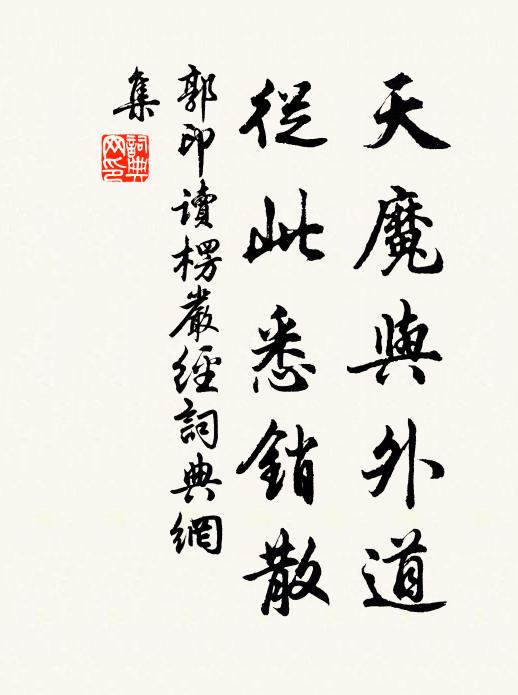 天魔與外道
從此悉銷散
郭印讀楞嚴經詞典網
集
詞典網印